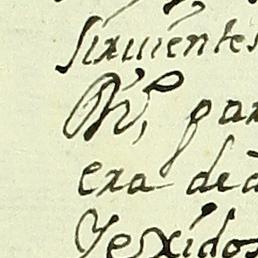 Sirvientes
par
era de
Texidos